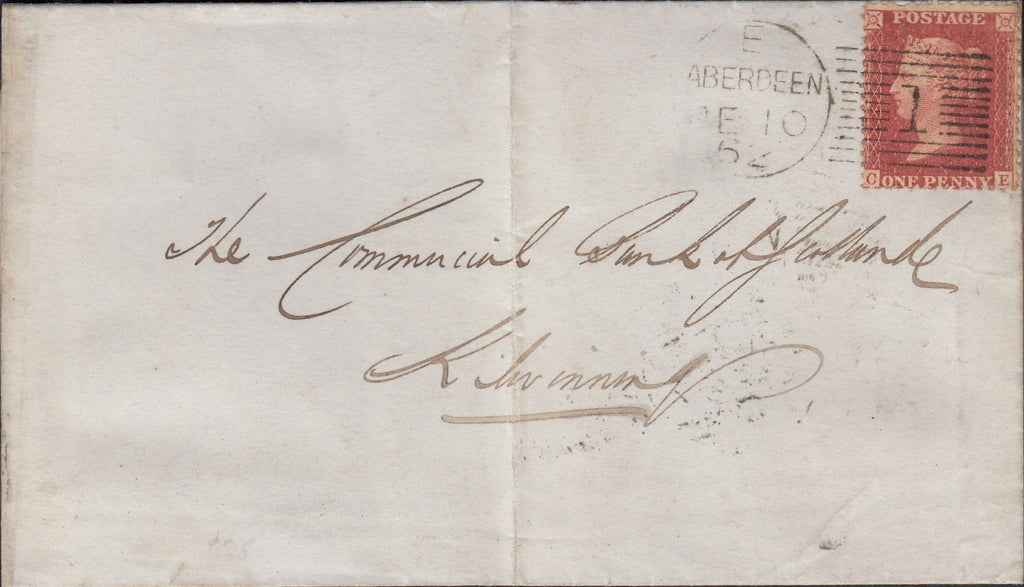 POSTAGE
E
ABERDEEN
10
62
1
C ONE PENNY E
The Commercial Bank of Scotland
Kilwinning